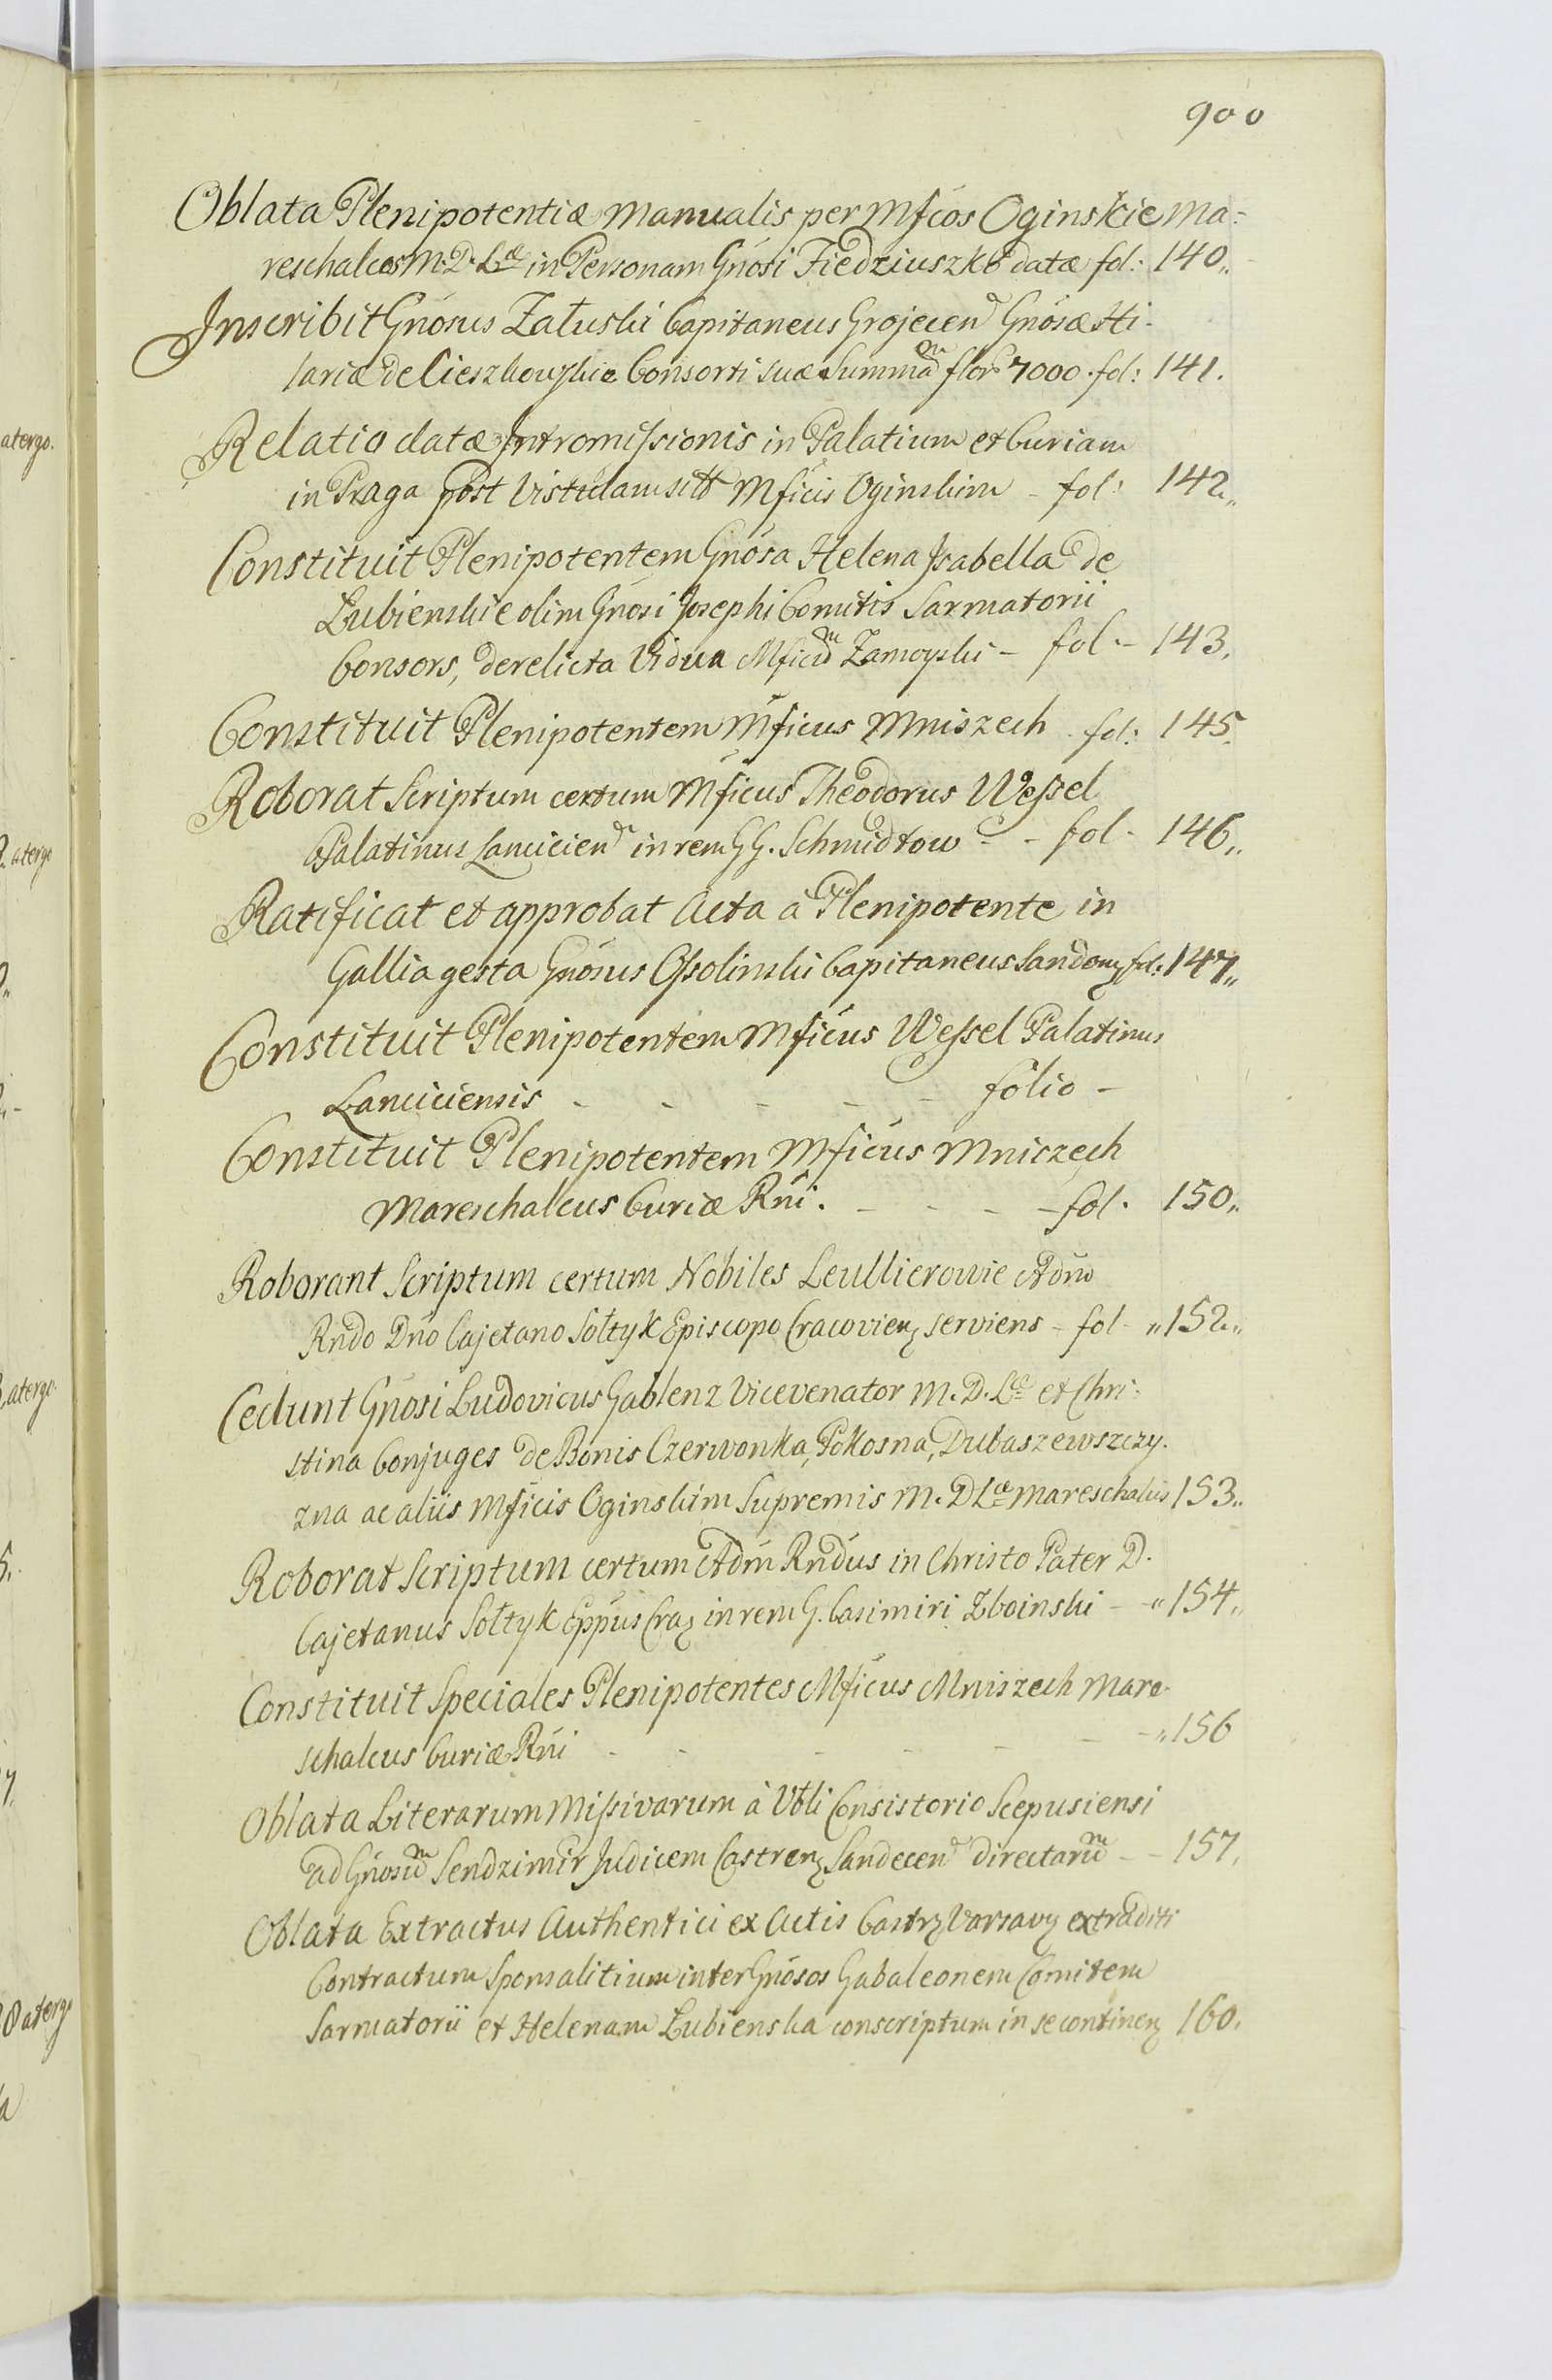 900
Oblata Plenipotentiæ Manualis per Mfcos Oginskie Ma=
reschalcos M. D. Læ in Personam Gnosi Fiedziuszko datæ fol: 140„
Inscribit Gnosus Załuski Capitaneus Grojecen Gnosæ Hi-
lariæ de Cieszkowskie Consorti suæ Summam flor 7000. fol: 141.
Relatio datæ Intromissionis in Palatium et Curiam
in Praga post Vistulam sitt Mficis Oginskim - fol: 142„
Constituit Plenipotentem Gnosa Helena Isabella de
Lubienskie olim Gnosi Josephi Comitis Sarmatorii
Consors, derelicta Vidua Mficum Zamoyski - fol - 143.
Constituit Plenipotentem Mficus Mniszech fol: 145.
Roborat Scriptum certum Mficus Theodorus Wessel
Palatinus Lancicien in rem GG. Schmidtow - - fol - 146„
Ratificat et approbat Acta à Plenipotente in
Gallia gesta Gnosus Ossolinski Capitaneus Sandom fol: 147„
Constituit Plenipotentem Mficus Wessel Palatinus
Lanciciensis - - - - - folio -
Constituit Plenipotentem Mficus Mniszech
Mareschalcus Curiæ Rni. - - - - fol. 150„
Roborant Scriptum certum Nobiles Leullierowie Adm
Rndo Dno Cajetano Sołtyk Episcopo Cracovien serviens - fol - „152„
Cedunt Gnosi Ludovicus Gablenz Vicevenator M. D. Læ et Chri-
stina Conjuges de Bonis Czerwonka, Pokosna, Dubaszewszczy-
zna ac aliis Mficis Oginskim Supremis M. D Læ Mareschalis 153„
Roborat Scriptum certum Adm Rndus in Christo Pater D.
Cajetanus Sołtyk Eppus Crac in rem G. Casimiri Zboinski - „154„
Constituit Speciales Plenipotentes Mficus Mniszech Mare-
schalcus Curiæ Rni - - - - - - - „156
Oblata Literarum Missivarum à Vbli Consistorio Scepusiensi
ad Gnosum Sendzimir Judicem Castren Sandecen directarum - - 157.
Oblata Extractus Authentici ex Actis Castr Varsav extraditi
Contractum Sponsalitium inter Gnosos Gabaleonem Comitem
Sarmatorii et Helenam Lubienska conscriptum in se continen 160.